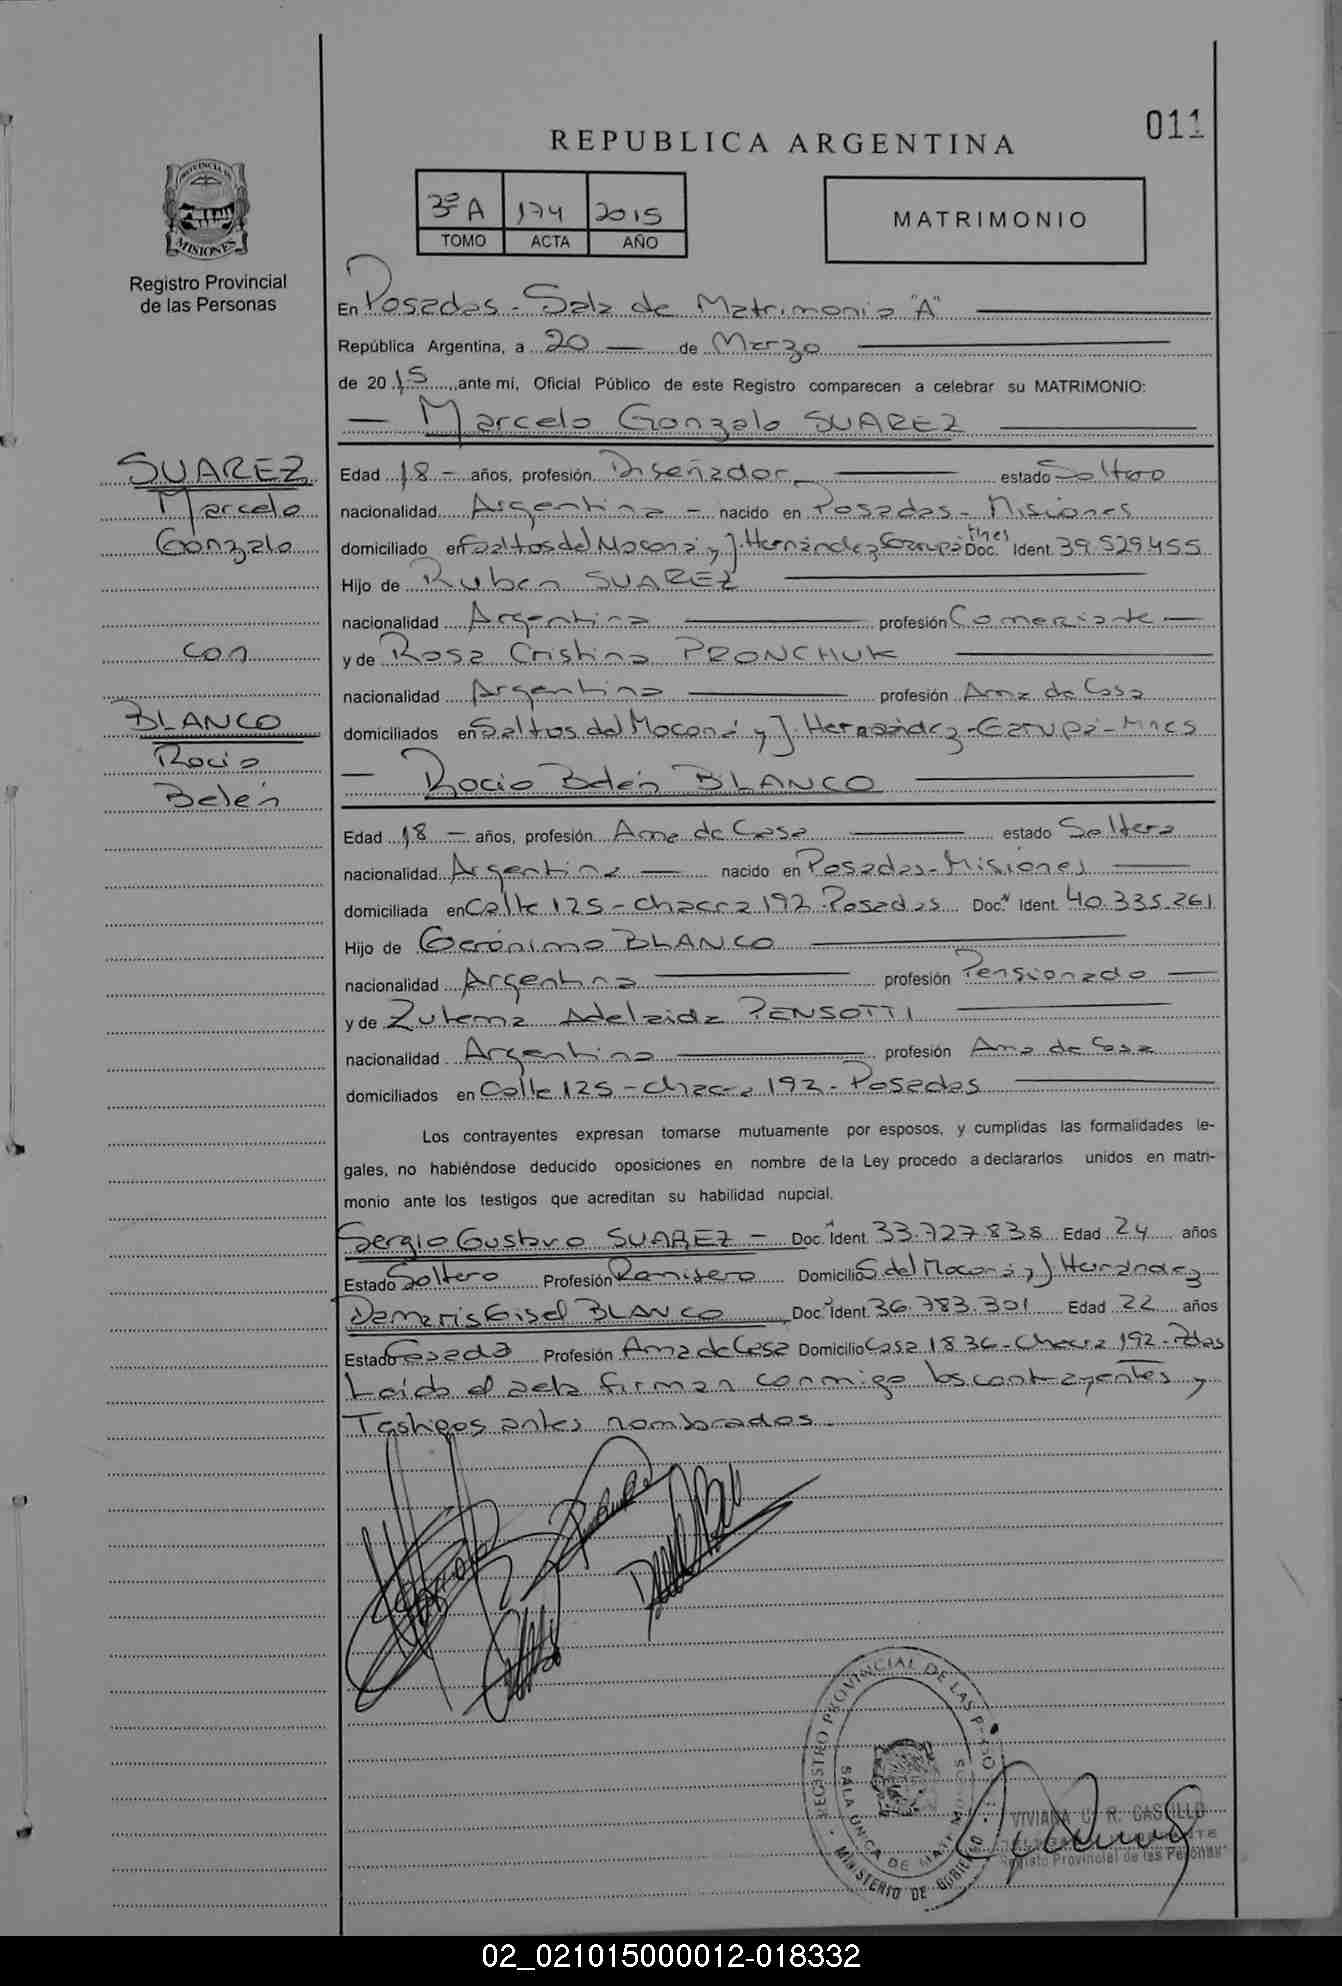 011
REPUBLICA ARGENTINA
PROVINCIA DE
MISIONES
Registro Provincial
de las Personas
3º A 174 2015
TOMO ACTA AÑO
MATRIMONIO
En Posadas - Sala de Matrimonio "A"
República Argentina, a 20 de Marzo
de 2015, ante mí, Oficial Público de este Registro comparecen a celebrar su MATRIMONIO:
Marcelo Gonzalo SUAREZ
SUAREZ
Marcelo
Gonzalo
con
BLANCO
Rocio
Belén
Edad 18 - años, profesión Diseñador estado Soltero
nacionalidad Argentina - nacido en Posadas - Misiones
domiciliado en Saltos del Moconá y J. Hernández Garupá Mnes Doc. Ident. 39.529.455
Hijo de Ruben SUAREZ
nacionalidad Argentina profesión Comerciante
y de Rosa Cristina PRONCHUK
nacionalidad Argentina profesión Ama de Casa
domiciliados en Saltos del Moconá y J. Hernández - Garupá - Mnes
Rocio Belén BLANCO
Edad 18 - años, profesión Ama de Casa estado Soltera
nacionalidad Argentina nacido en Posadas - Misiones
domiciliada en Calle 125 - chacra 192 - Posadas Doc. Ident. 40.335.261
Hijo de Gerónimo BLANCO
nacionalidad Argentina profesión Pensionado
y de Zulema Adelaida PENSOTTI
nacionalidad Argentina profesión Ama de Casa
domiciliados en Calle 125 - chacra 192 - Posadas
Los contrayentes expresan tomarse mutuamente por esposos, y cumplidas las formalidades le-
gales, no habiéndose deducido oposiciones en nombre de la Ley procedo a declararlos unidos en matri-
monio ante los testigos que acreditan su habilidad nupcial.
Sergio Gustavo SUAREZ - Doc. Ident. 33.727.838 Edad 24 años
Estado Soltero Profesión Remisero Domicilio S. del Moconá y J Hernández
Damaris Gisel BLANCO Doc. Ident. 36.783.301 Edad 22 años
Estado Casada Profesión Ama de Casa Domicilio Casa 1836 - Chacra 192 - Pdas
Leída el acta firman conmigo los contrayentes y
Testigos antes nombrados
REGISTRO PROVINCIAL DE LAS
SALA UNICA DE
MINISTERIO DE GOBIERNO
VIVIANA R. CASTILLO
Registro Provincial de las Personas
02_021015000012-018332